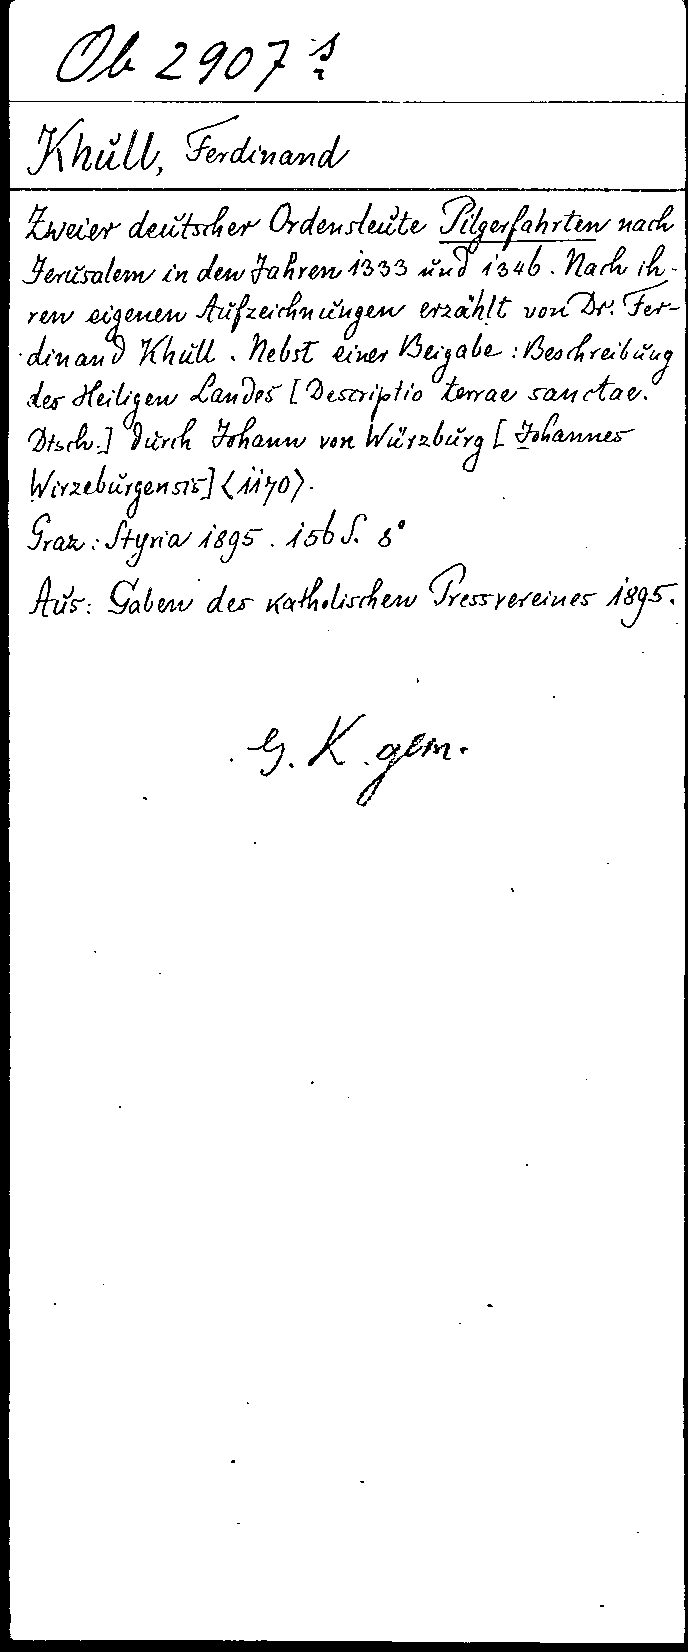 Ob 2907 s
Khull, Ferdinand
Zweier deutscher Ordensleute Pilgerfahrten nach
Jerusalem in den Jahren 1333 und 1346. Nach ih-
ren eigenen Aufzeichnungen erzählt von Dr. Fer-
dinand Khull. Nebst einer Beigabe: Beschreibung
des Heiligen Landes [Descriptio terrae sanctae.
Dtsch.] durch Johann von Würzburg [Johannes
Wirzeburgensis] <1170>.
Graz: Styria 1895. 156 S. 8°
Aus: Gaben des katholischen Pressvereines 1895.
G. K. gem.